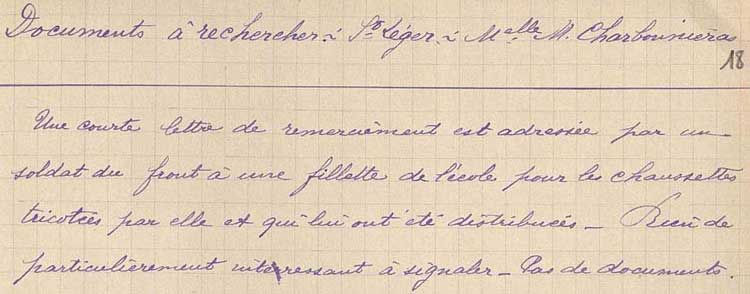 Documents à rechercher : St Léger : Melle M. Charbonniéras
18
Une courte lettre de remerciement est adressée par un
soldat du front à une fillette de l'école pour les chaussettes
tricotées par elle et qui lui ont été distribuées _ Rien de
particulièrement intéressant à signaler _ Pas de documents.